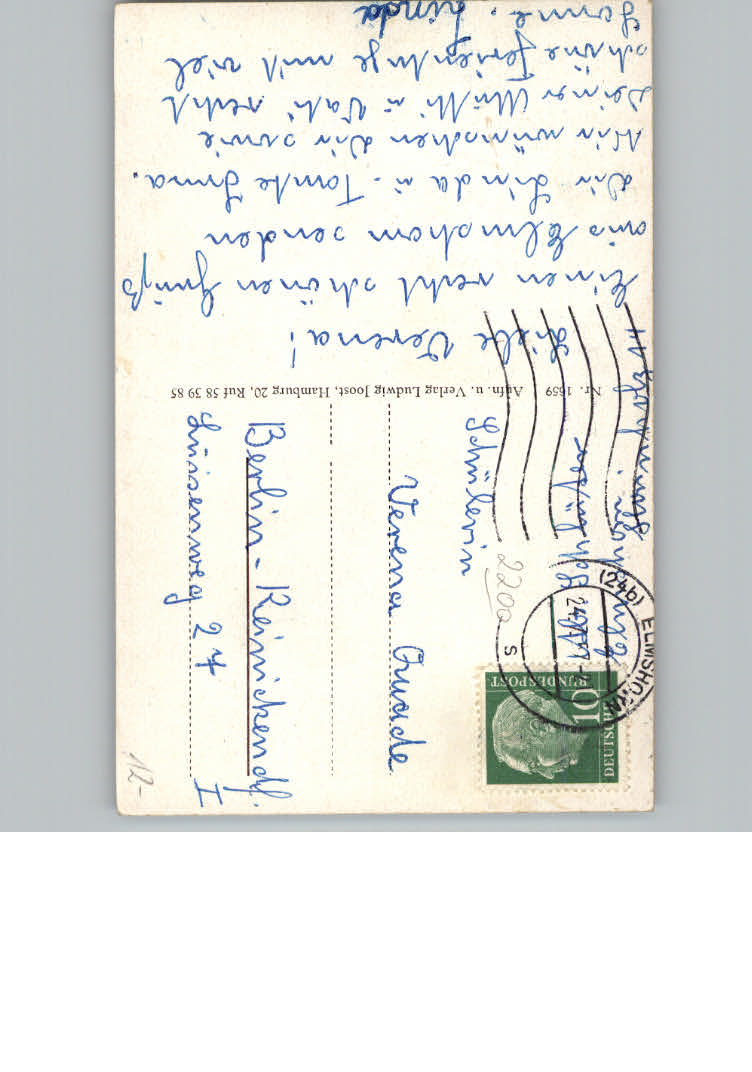 Liebe Verena!
Einen recht schönen Gruß
aus Elmshorn senden
Dir Linda u. Tante Irma.
Wir wünschen Dir sowie
Deiner Mutti u. Vati recht
schöne Ferientage mit viel
Sonne. Linda
Nr. 1659 Aufn. u. Verlag Ludwig Joost, Hamburg 20, Ruf 58 39 85
DEUTSCHE
BUNDESPOST
10
(24b) ELMSHORN
s
2200
Schülerin
Verena Quade
Berlin-Reinickendf.
I
Luisenweg
12-